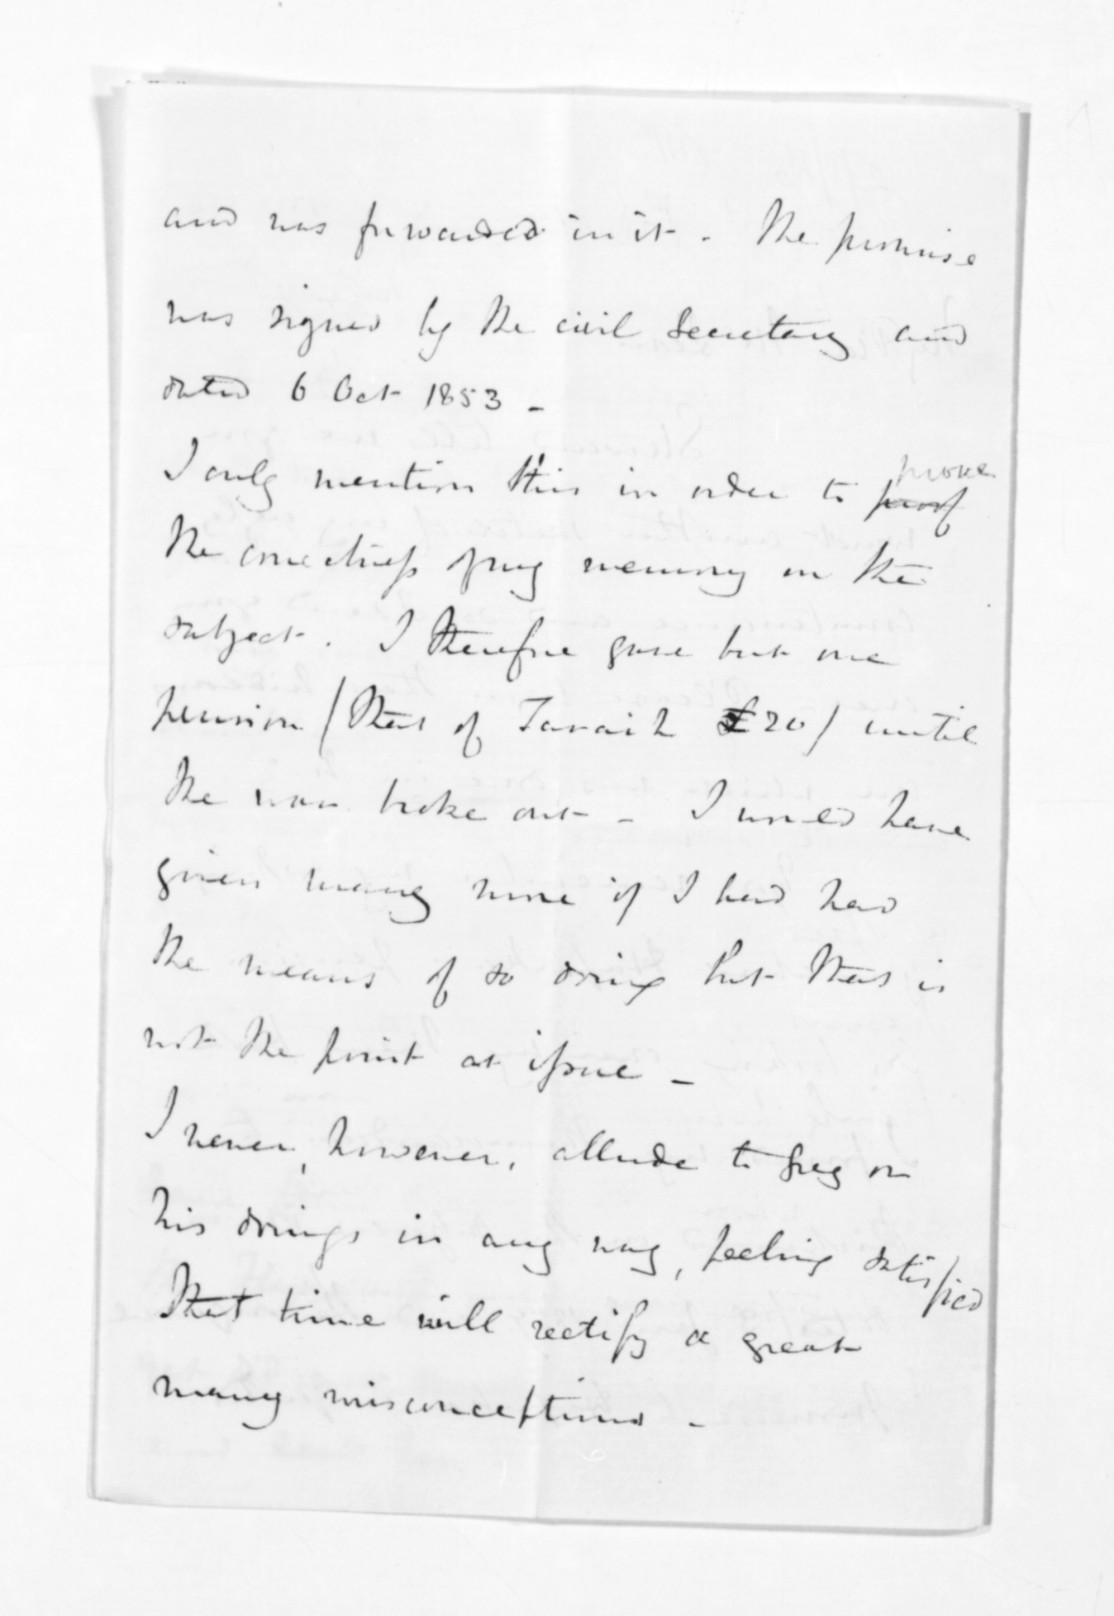 and was forwarded in it - The promise
was signed by the civil Secretary and
dated 6 Oct 1853 -
I only mention this in order to proof prove
the correctness of my memory on the
subject. I therefore gave but one
pension (that of Taraih £20) until
the war broke out - I would have
given many more if I had had
the means of so doing but that is
not the point at issue -
I never, however, allude to Grey or
his doings in any way, feeling satisfied
that time will rectify a great
many misconceptions -